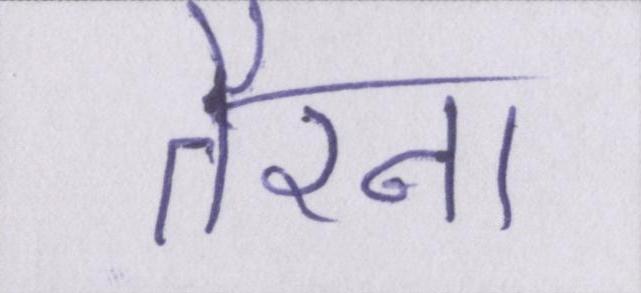 तैरना